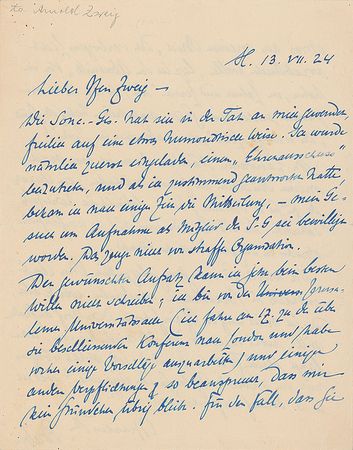 an Arnold Zweig
H. 13. VII. 24
Lieber Herr Zweig —
Die Sonc.-Ges. hat sich in der Tat an mich gewendet,
freilich auf eine etwas humoristische Weise. Ich wurde
nämlich zuerst eingeladen, einem „Ehrenausschuss"
beizutreten, und als ich zustimmend geantwortet hatte,
bekam ich nach einiger Zeit die Mitteilung, – mein Ge-
such um Aufnahme als Mitglied der S-G sei bewilligt
worden. Das zeugt nicht von straffer Organisation.
Den gewünschten Aufsatz kann ich jetzt beim besten
Willen nicht schreiben; ich bin von der Univers Jerusa-
lemer Universitätssache (ich fahre am 17. zu der über
sie beschliessenden Konferenz nach London und habe
vorher einige Vorschläge auszuarbeiten) und einigen
andern Verpflichtungen so beansprucht, dass mir
kein Stündchen übrig bleibt. Für den Fall, dass Sie